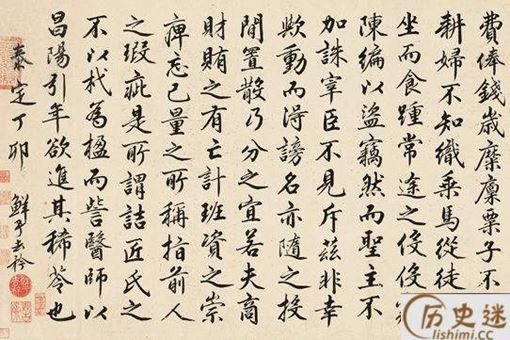 費俸錢歲糜廩粟子不
耕婦不知織乘馬從徒
坐而食踵常途之
陳編以盜竊然而聖主不
加誅宰臣不見斥茲非幸
歟動而得謗名亦隨之投
閒置散乃分之宜若夫商
財賄之有亡計班資之崇
庳忘己量之所稱指前人
之瑕疵是所謂詰匠氏之
不以杙為楹而訾醫師以
昌陽引年欲進其豨苓也
泰定丁卯 鮮于去矜
历史迷
lishimi.cc